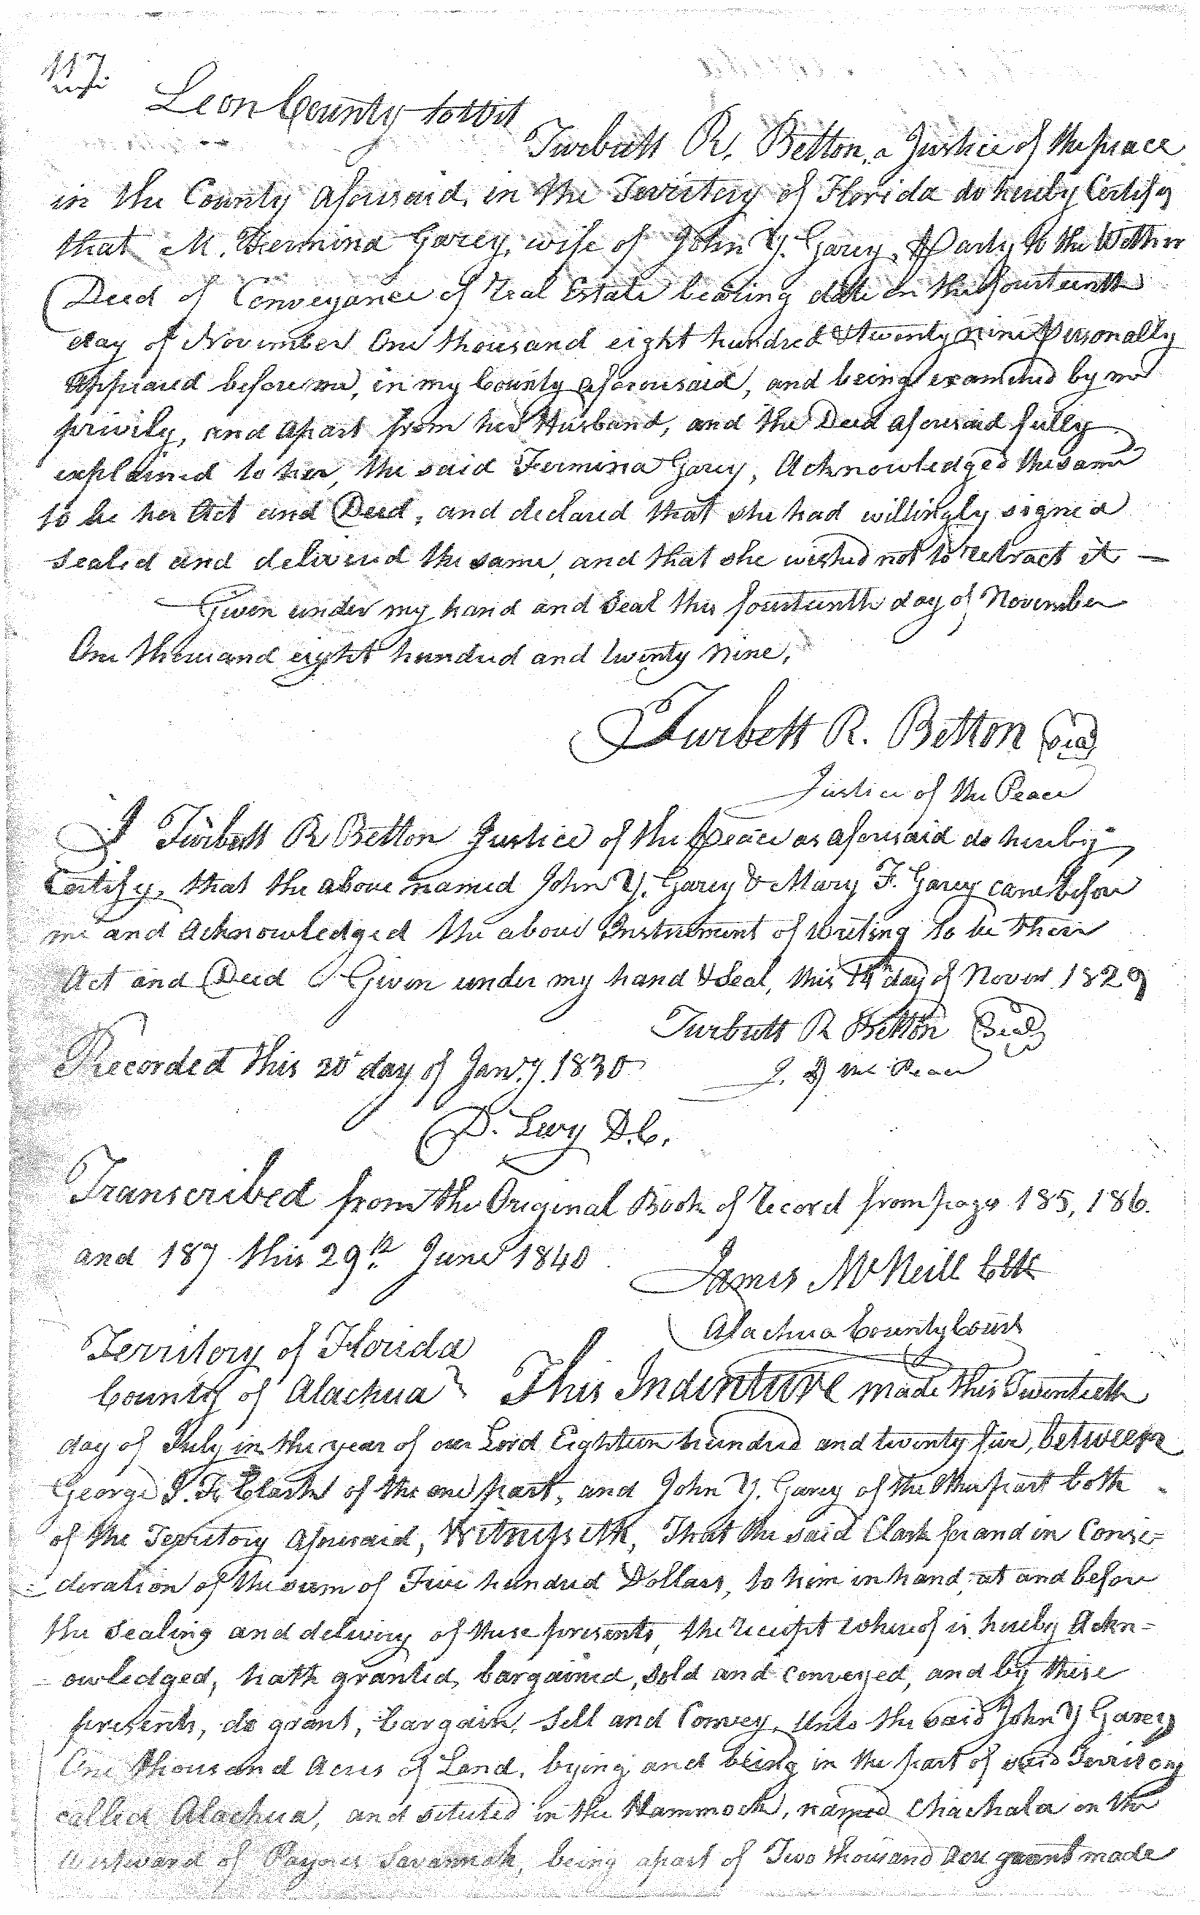 117
Leon County towit
Turbutt R. Betton, a Justice of the peace
in the County aforesaid, in the Territory of Florida do hereby Certify
that M. Fermina Garey, wife of John Y. Garey, A Party to the Within
Deed of Conveyance of Real Estate bearing date on the fourteenth
day of November One thousand eight hundred & twenty nine personally
appeared before me, in my County aforesaid, and being examined by me
privily, and apart from her Husband, and the Deed aforesaid fully
explained to her, the said Fermina Garey, Acknowledged the same
to be her Act and Deed, and declared that she had willingly signed
sealed and delivered the same, and that she wished not to retract it —
Given under my hand and Seal this fourteenth day of November
One thousand eight hundred and twenty nine,
Turbutt R. Betton Seal
Justice of the Peace
I Turbutt R Betton Justice of the Peace as aforesaid do hereby
Certify, that the above named John Y. Garey & Mary F. Garey came before
me and Acknowledged the above Instrument of writing to be their
Act and Deed Given under my hand & Seal, this 14th day of Novem 1829
Turbutt R Betton Seal
Recorded this 20 day of Jany. 1830
J. of the Peace
D. Levy D.C.
Transcribed from the Original Book of Record from page 185, 186.
and 187 this 29th June 1840
James McNeill Clk
Alachua County Court
Territory of Florida
County of Alachua } This Indenture made this Twentieth
day of July in the year of our Lord Eighteen hundred and twenty five, between
George J. F. Clark of the one part, and John Y. Garey of the other part both
of the Territory Aforesaid, Witnesseth, That the said Clark for and in Consi=
=deration of the sum of Five hundred Dollars, to him in hand, at and before
the sealing and delivery of these presents, the receipt whereof is hereby Ackn=
=owledged, hath granted, bargained, sold and conveyed, and by these
presents, do grant, bargain, sell and Convey, Unto the said John Y Garey
One thousand Acres of Land, lying and being in the part of said Territory
called Alachua, and situted in the Hammock, named Chachala on the
Westward of Paynes Savannah, being a part of Two thousand Acre grant made